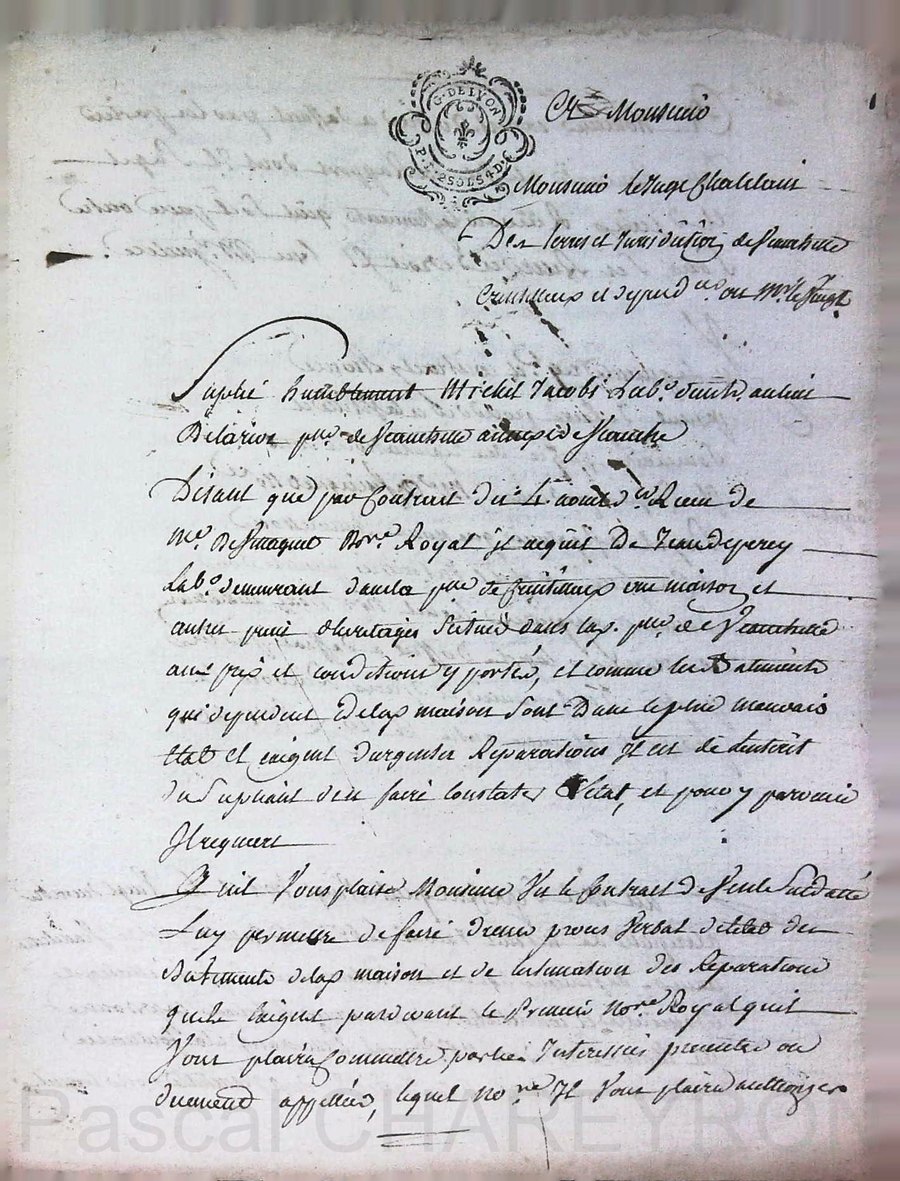 G. DE LYON
P. P. 2 SOLS 4 D.
A Monsieur
Monsieur le Juge Chatelain
Des terres et Jurisdiction de Veauchette
et dependces ou Mr le
Suplie humblement Michel Jacob Labo.
De la prse de Veauchette annexe de
Disant que par Contrat du 4e Recu de
Me Nore Royal il acquit De Jean deperey
Labo demeurant dans la prse de une maison et
autres fonds d'heritages scitués dans lad. prse de Veauchette
aux prix et conditions y portés, et comme les Batiments
qui dependent de lad maison sont Dans le plus mauvais
Etat et exigent d'urgentes Reparations Il est de l'interêt
du Supliant d'en faire Constater l'Etat, et pour y parvenir
Il requiert
Qu'il Vous plaise Monsieur Vu le Contract de Vente Susdatté
Luy permettre de faire dresser proces Verbal d'etat des
Batiments de lad maison et de l'estimation des Reparations
qu'elle Exigent pardevant le Premier Nore Royal qu'il
Vous plaira Commettre parties Interessées presentes ou
duement appellées, lequel Nore Il Vous plaira authoriser
Pascal CHAREYRON